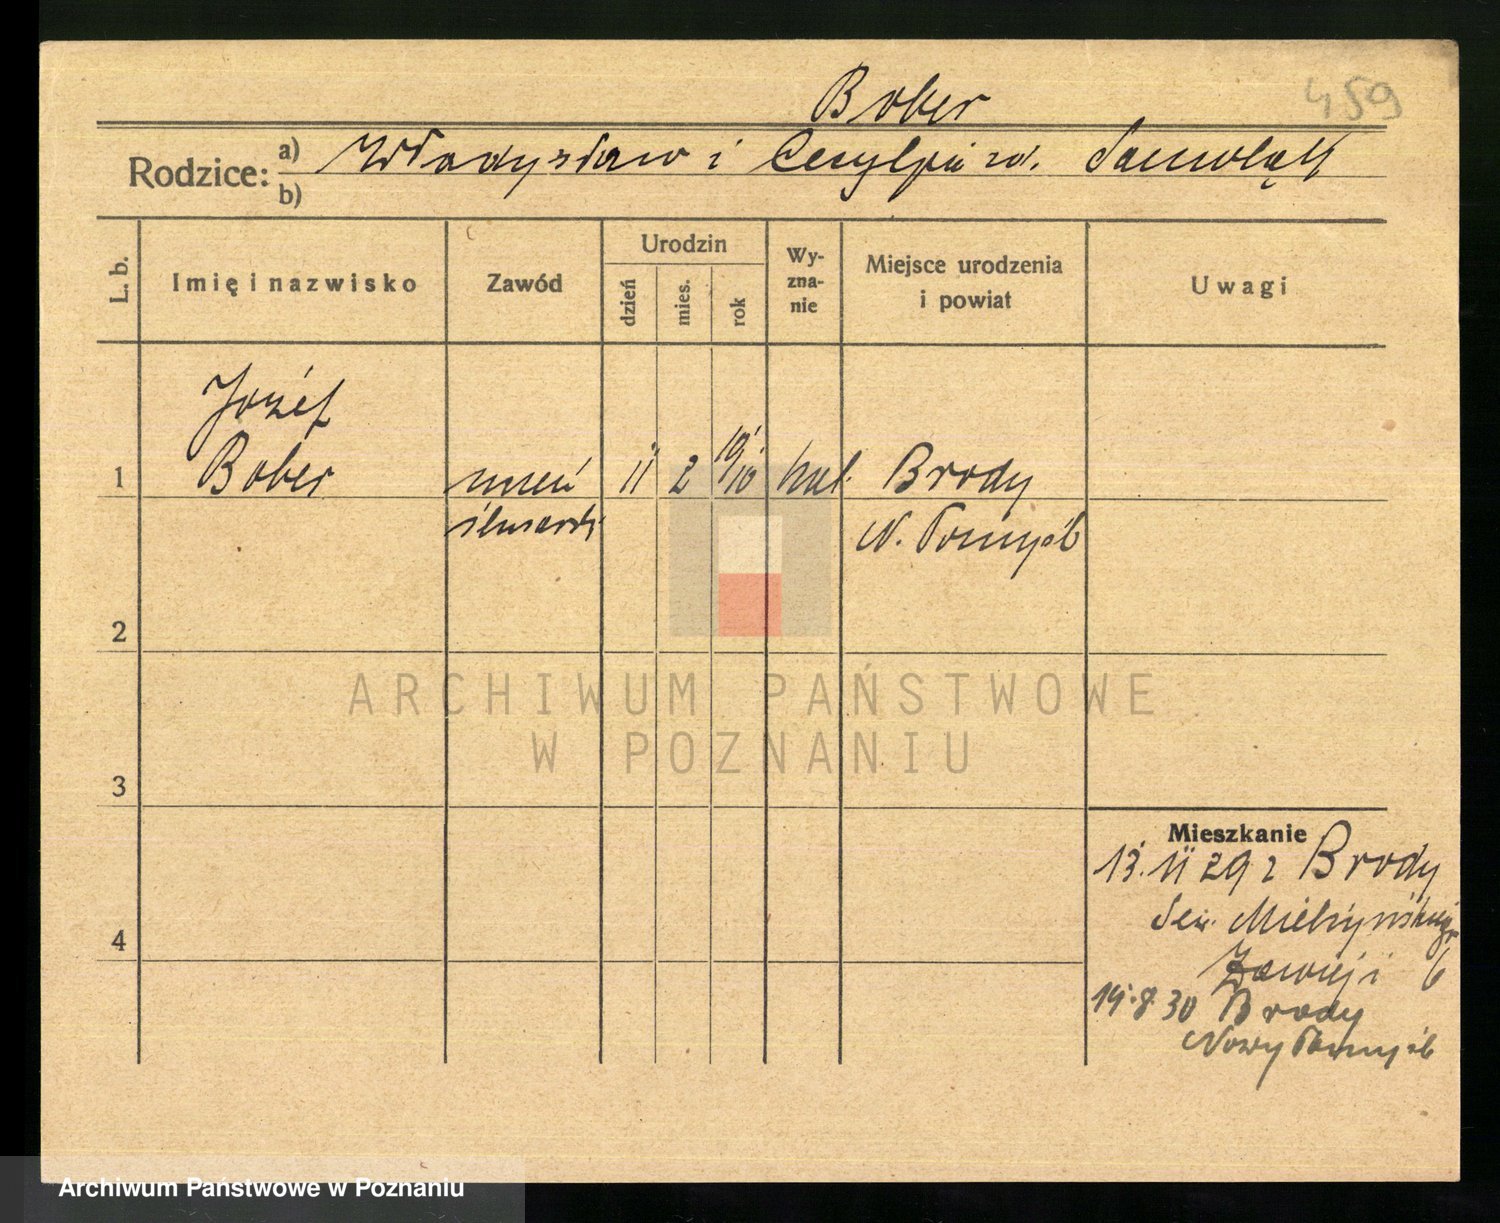 459
Bober
Rodzice: a) Władysław i Cecylia zd.
b)
L. b.
Imię i nazwisko
Zawód
Urodzin
dzień
mies.
rok
Wy-
zna-
nie
Miejsce urodzenia
i powiat
Uwagi
Józef
1 Bober uczeń 11 2 1910 kat. Brody
ślusarski N. Tomyśl
2
ARCHIWUM PAŃSTWOWE
W POZNANIU
3
Mieszkanie
13. 11 29 z Brody
Sew. Mielżyńskiego
4
6
14.8.30 Brody
Nowy Tomyśl
Archiwum Państwowe w Poznaniu